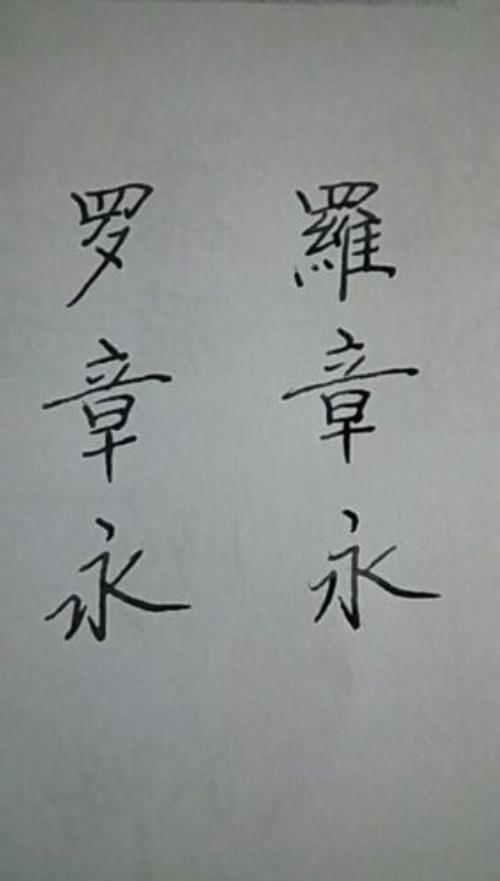 羅章永
罗章永